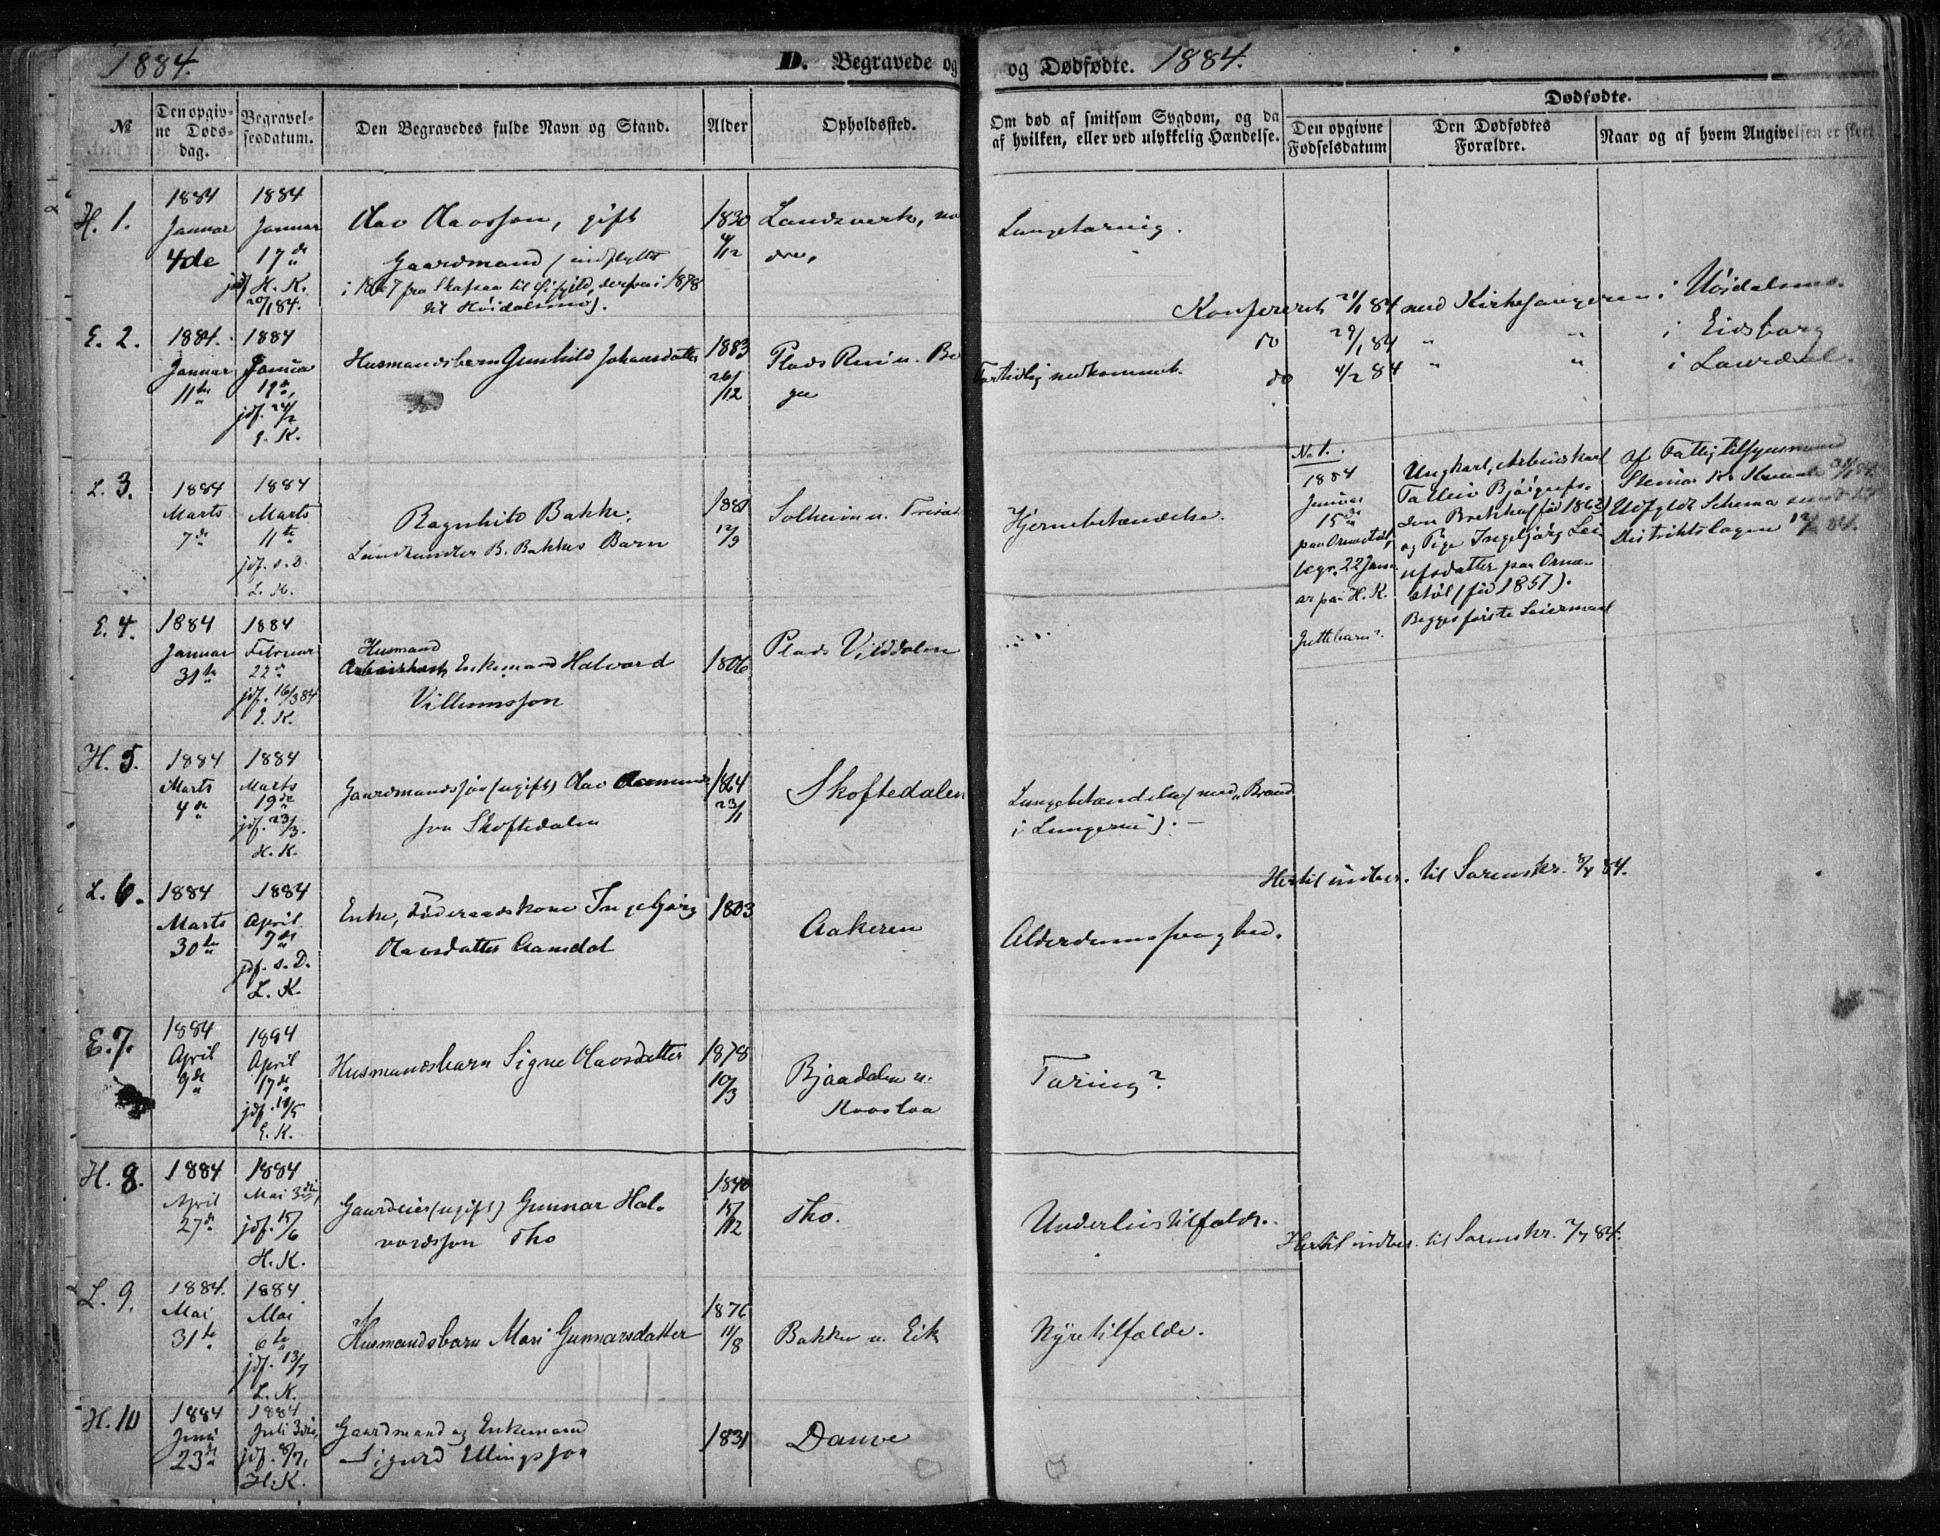 1884. D. Begravede og
og Dødfødte. 1884.
№
Den opgivne Døds-dag.
Begravelsesdatum.
Den Begravedes fulde Navn og Stand.
Alder
Opholdssted.
Om død af smitsom Sygdom, og da af hvilken, eller ved ulykkelig Hændelse.
Dødfødte.
Den opgivne Fødselsdatum
Den Dødfødtes Forældre.
Naar og af hvem Angivelsen er skeet
H. 1.
1884 Januar 4de
1884 Januar 17de
jdf. H. K. 20/1 84.
Olav Olavsson, gift
Gaardmand (indflyttet
i 1867 fra Skafsaa til, derfra i 1878
til Høidalsmo).
1830 4/12
Landsverk, nordre,
Lungetæring.
Konfereret 21/1 84 med Kirkesangeren i Høidalsmo.
do 29/1 84 " " i Eidsborg
do 4/2 84 " " i Laurdal.
E. 2.
1884. Januar 11te
1884 Januar 19de
jdf. 24/2 E. K.
Husmandsbarn Gunhild Johansdatter
1883 26/12
Plads Rui u. Berge
Fortidlig nedkommet.
L. 3.
1884 Marts 7de
1884 Marts 11te
jdf. s. D. L. K.
Ragnhild Bakke,
Landhandler B. Bakkes Barn
1881 17/9
Solheim u.
Hjernebetændelse.
No 1.
1884
Januar
15de
paa Ornestøl,
begr. 22 Januar
paa H. K.
Ungkarl, Arbeidskarl
Talleiv Bjørgufsøn
Bretskaf (fød 1862)
og Pige Ingebjørg Leiufsdatter
paa Ornestøl
(fød 1857).
Begges første Leiermaal
Af Fattigtilsynsmand
Steinar K.
Udfyldt Schema sendt til
Distriktslægen
E. 4.
1884 Januar 31te
1884 Februar 22de
jdf. 16/3 84 E. K.
Husmand
Arbeidskarl, Enkemand Halvard
Villumsson
1806
Plads Vilddalen
H. 5.
1884 Marts 4de
1884 Marts 19de
jdf. 23/3. H. K.
Gaardmandssøn (ugift) Olav Aamundsson
Skoftedalen
1864 23/1
Skoftedalen
Lungebetændelse (med "Brand
i Lungerne").
Hertil indber. til Sorenskr. 8/4 84.
L. 6.
1884 Marts 30te
1884 April 7de
jdf. s. D. L. K.
Enke, Føderaadskone Ingebjørg
Olavsdatter Aamdal
1803
Aakeren
Alderdomssvaghed.
E. 7.
1884 April 9de
1884 April 17de
jdf. 18/5 E. K.
Husmandsbarn Signe Olavsdatter
1878 10/3
Bjaadalen u.
Kaasaa
Tæring?
H. 8.
1884 April 27de
1884 Mai 3die,
jdf. 15/6 H. K.
Gaardeier (ugift) Gunnar Halvordsson
Tho
1840 15/12
Tho.
Underlivstilfælde.
Hertil indber. til Sorenskr. 7/7 84.
L. 9.
1884. Mai 31te
1884 Mai 6te
jdf. 13/7 L. K.
Husmandsbarn Mari Gunnarsdatter
1876 11/8
Bakken u. Eik
Nyretilfælde.
H. 10
1884 Juni 23de
1884 Juli 3die,
jdf. 8/7, H. K.
Gaardmand og Enkemand
Sigurd Ellingsson
1831
Dauve